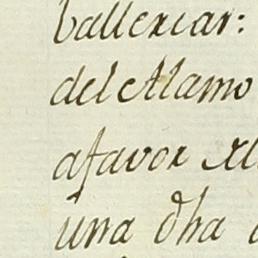 ballexiar:
del Alamo
afavor
una dha